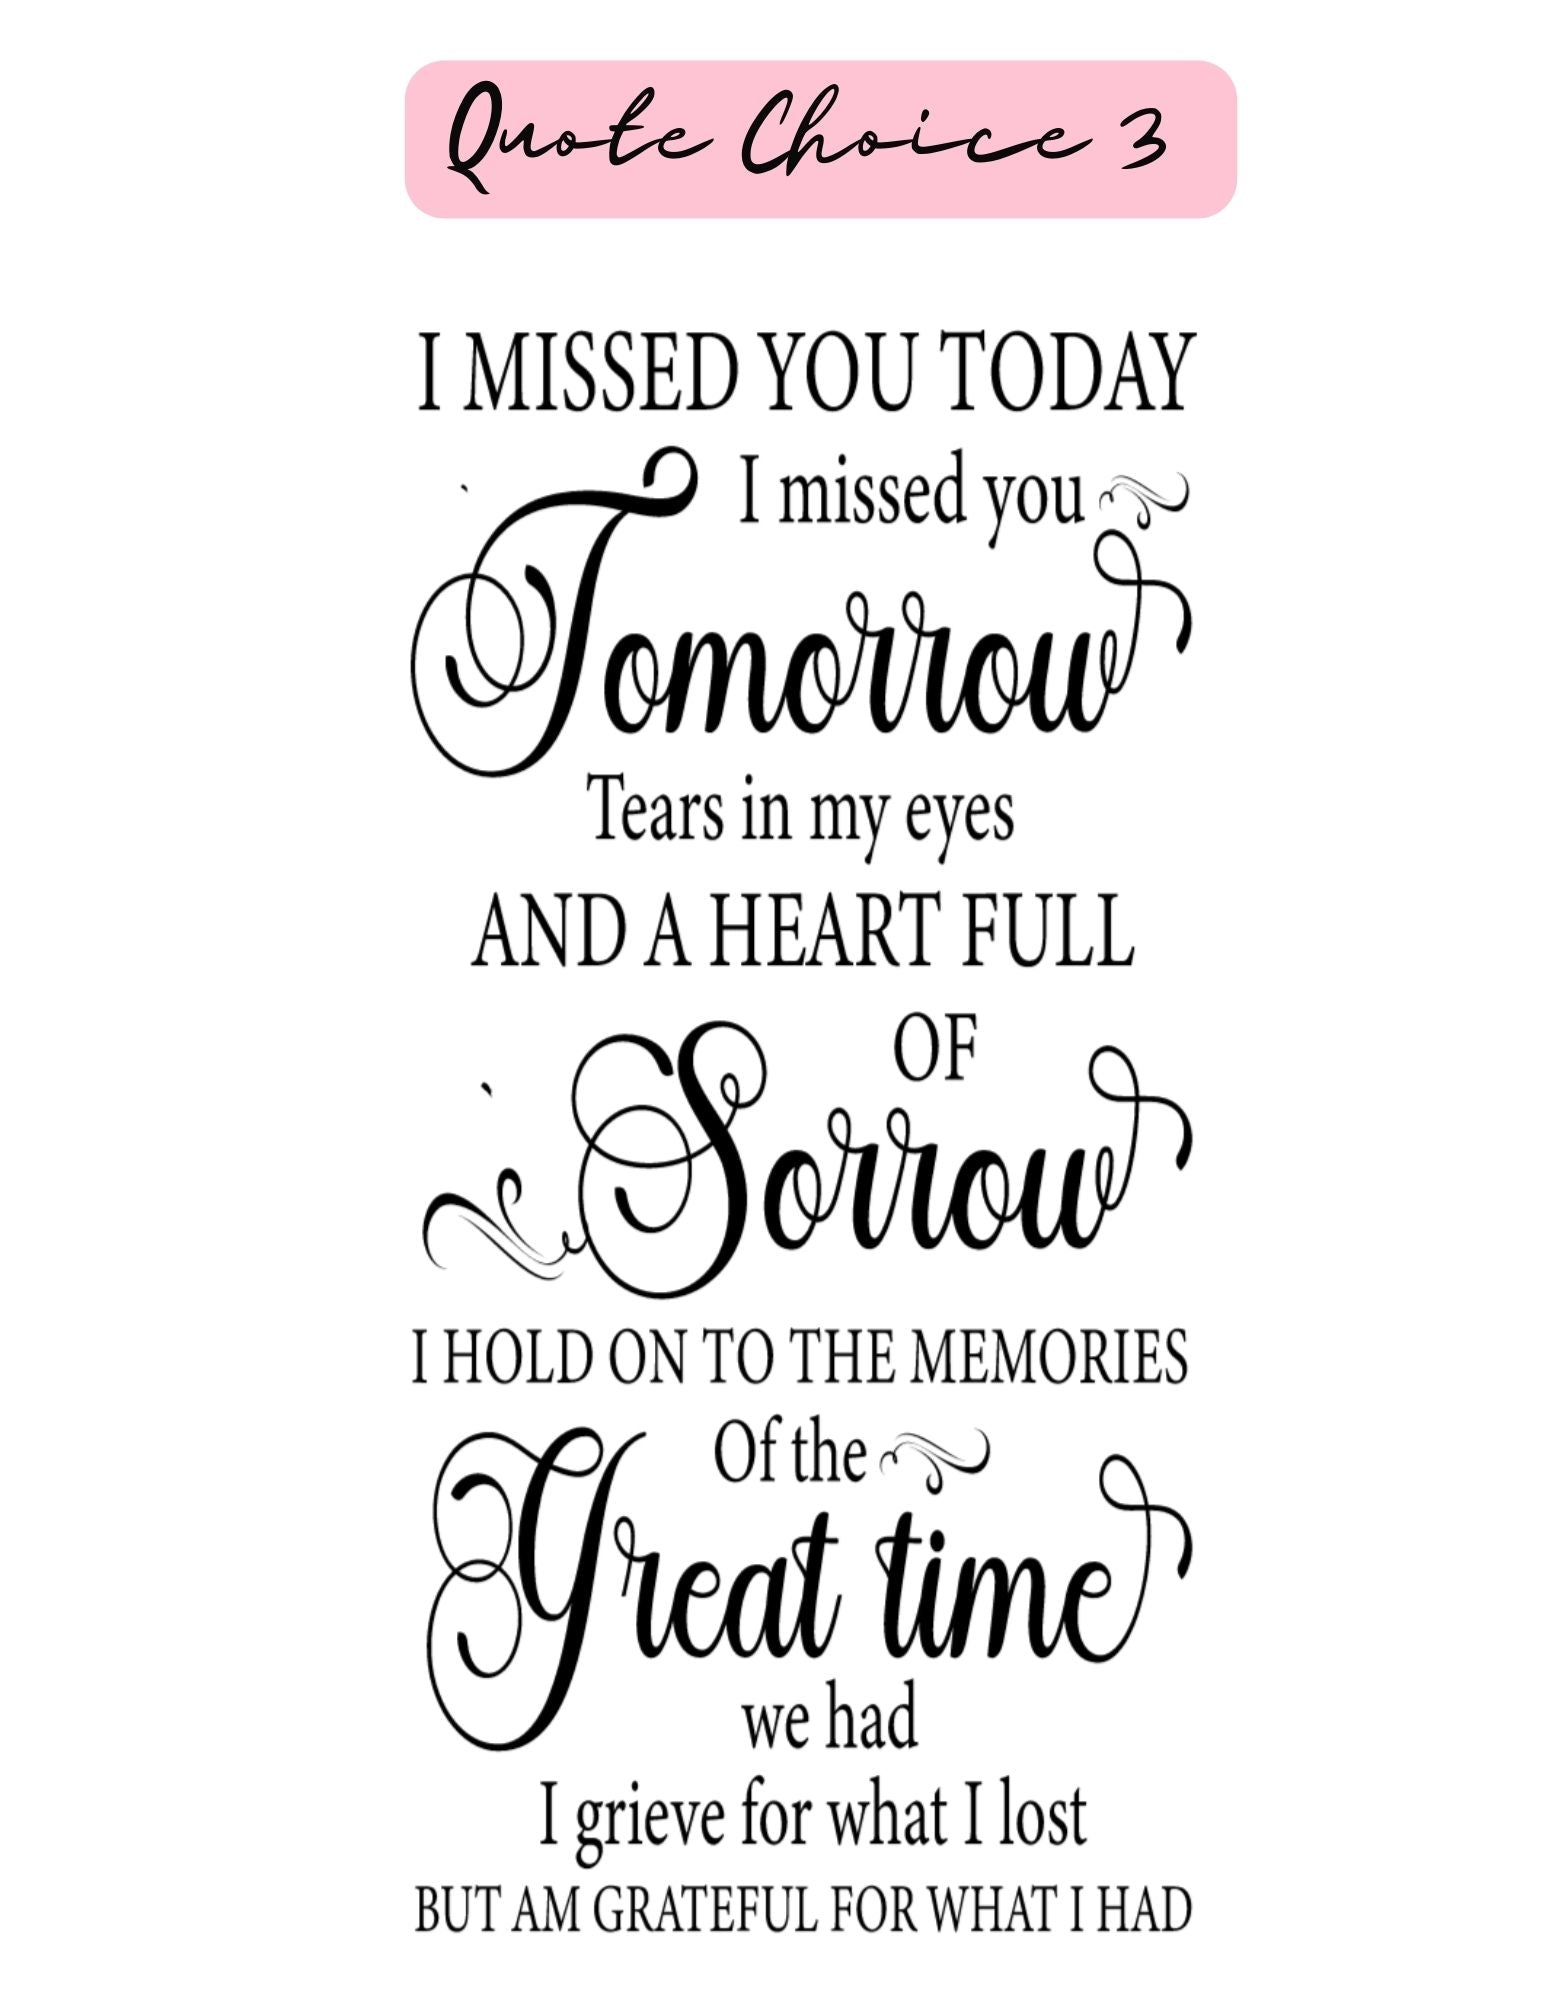 Quote Choice 3
I MISSED YOU TODAY
I missed you
Tomorrow
Tears in my eyes
AND A HEART FULL
OF
Sorrow
I HOLD ON TO THE MEMORIES
Of the
Great time
we had
I grieve for what I lost
BUT AM GRATEFUL FOR WHAT I HAD